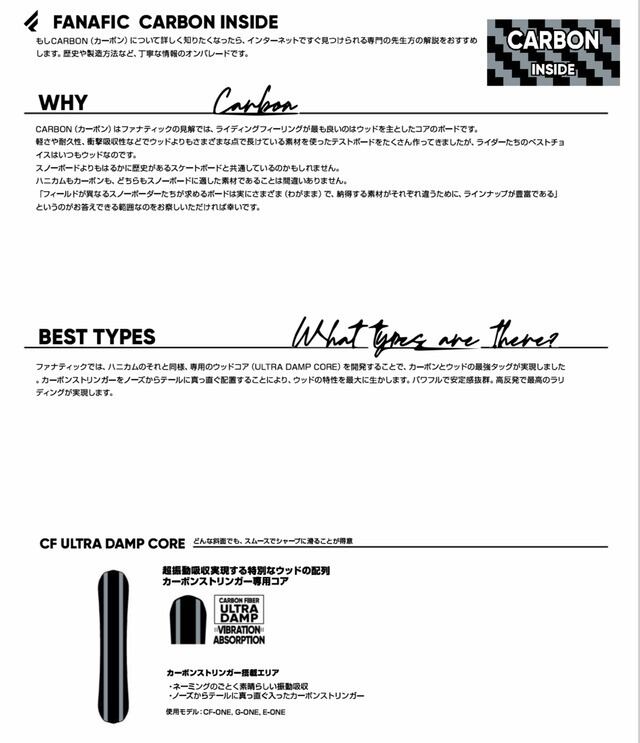 FANAFIC CARBON INSIDE
もしCARBON（カーボン）について詳しく知りたくなったら、インターネットですぐ見つけられる専門の先生方の解説をおすすめ
します。歴史や製造方法など、丁寧な情報のオンパレードです。
CARBON
INSIDE
WHY Carbon
CARBON（カーボン）はファナティックの見解では、ライディングフィーリングが最も良いのはウッドを主としたコアのボードです。
軽さや耐久性、衝撃吸収性などでウッドよりもさまざまな点で長けている素材を使ったテストボードをたくさん作ってきましたが、ライダーたちのベストチョ
イスはいつもウッドなのです。
スノーボードよりもはるかに歴史があるスケートボードと共通しているのかもしれません。
ハニカムもカーボンも、どちらもスノーボードに適した素材であることは間違いありません。
「フィールドが異なるスノーボーダーたちが求めるボードは実にさまざま（わがまま）で、納得する素材がそれぞれ違うために、ラインナップが豊富である」
というのがお答えできる範囲なのをお察しいただければ幸いです。
BEST TYPES What types are there?
ファナティックでは、ハニカムのそれと同様、専用のウッドコア（ULTRA DAMP CORE）を開発することで、カーボンとウッドの最強タッグが実現しました
。カーボンストリンガーをノーズからテールに真っ直ぐ配置することにより、ウッドの特性を最大に生かします。パワフルで安定感抜群。高反発で最高のラリ
ディングが実現します。
CF ULTRA DAMP CORE どんな斜面でも、スムースでシャープに滑ることが得意
超振動吸収実現する特別なウッドの配列
カーボンストリンガー専用コア
CARBON FIBER
ULTRA
DAMP
VIBRATION
ABSORPTION
カーボンストリンガー搭載エリア
・ネーミングのごとく素晴らしい振動吸収
・ノーズからテールに真っ直ぐ入ったカーボンストリンガー
使用モデル：CF-ONE, G-ONE, E-ONE